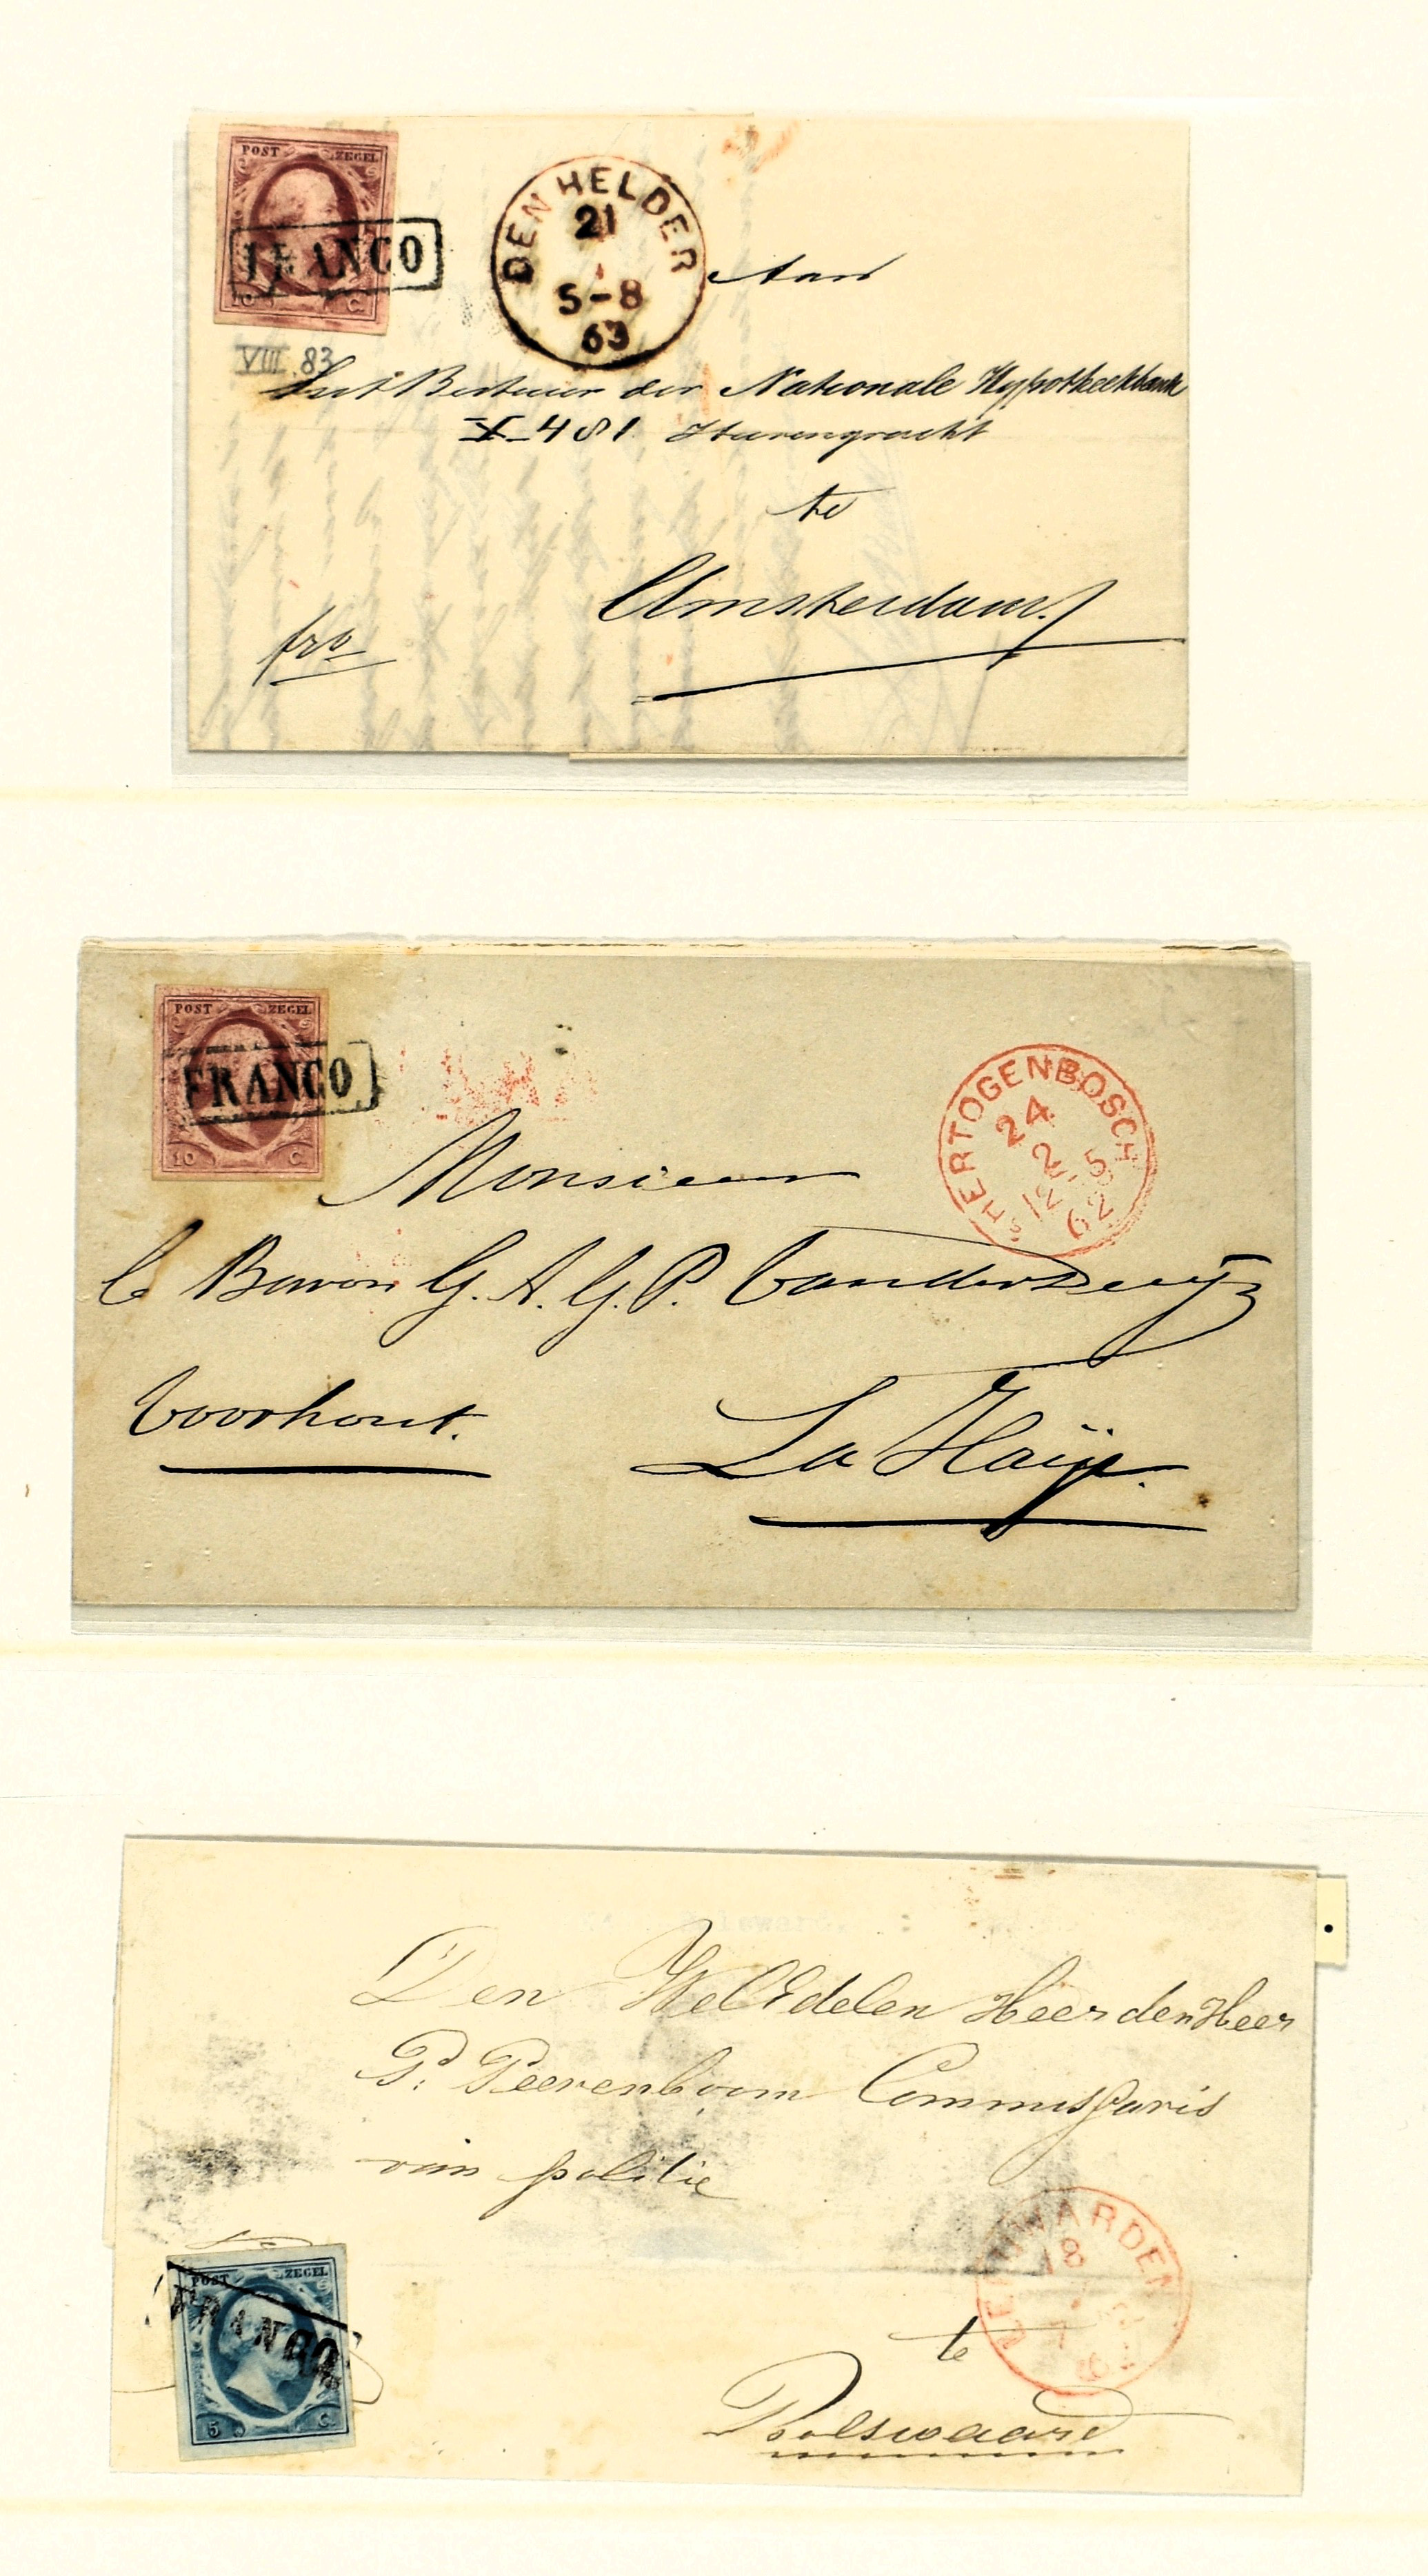 POST ZEGEL
FRANCO
10 C.
DEN HELDER
21
1
5-8
63
Aan
VIII 83
het Bestuur der Nationale Hypotheekbank
X 481 Heerengracht
te
Amsterdam.
fro
POST ZEGEL
FRANCO
10 C.
'S HERTOGENBOSCH
24
2
12 5
62
Monsieur
le Baron G. A. G. P.
Voorhout.
La Haije.
Den WelEdelen Heer den Heer
P. Peerenboom Commissaris
van politie
POST ZEGEL
FRANCO
5 C.
LEEUWARDEN
18
te
Bolswaard